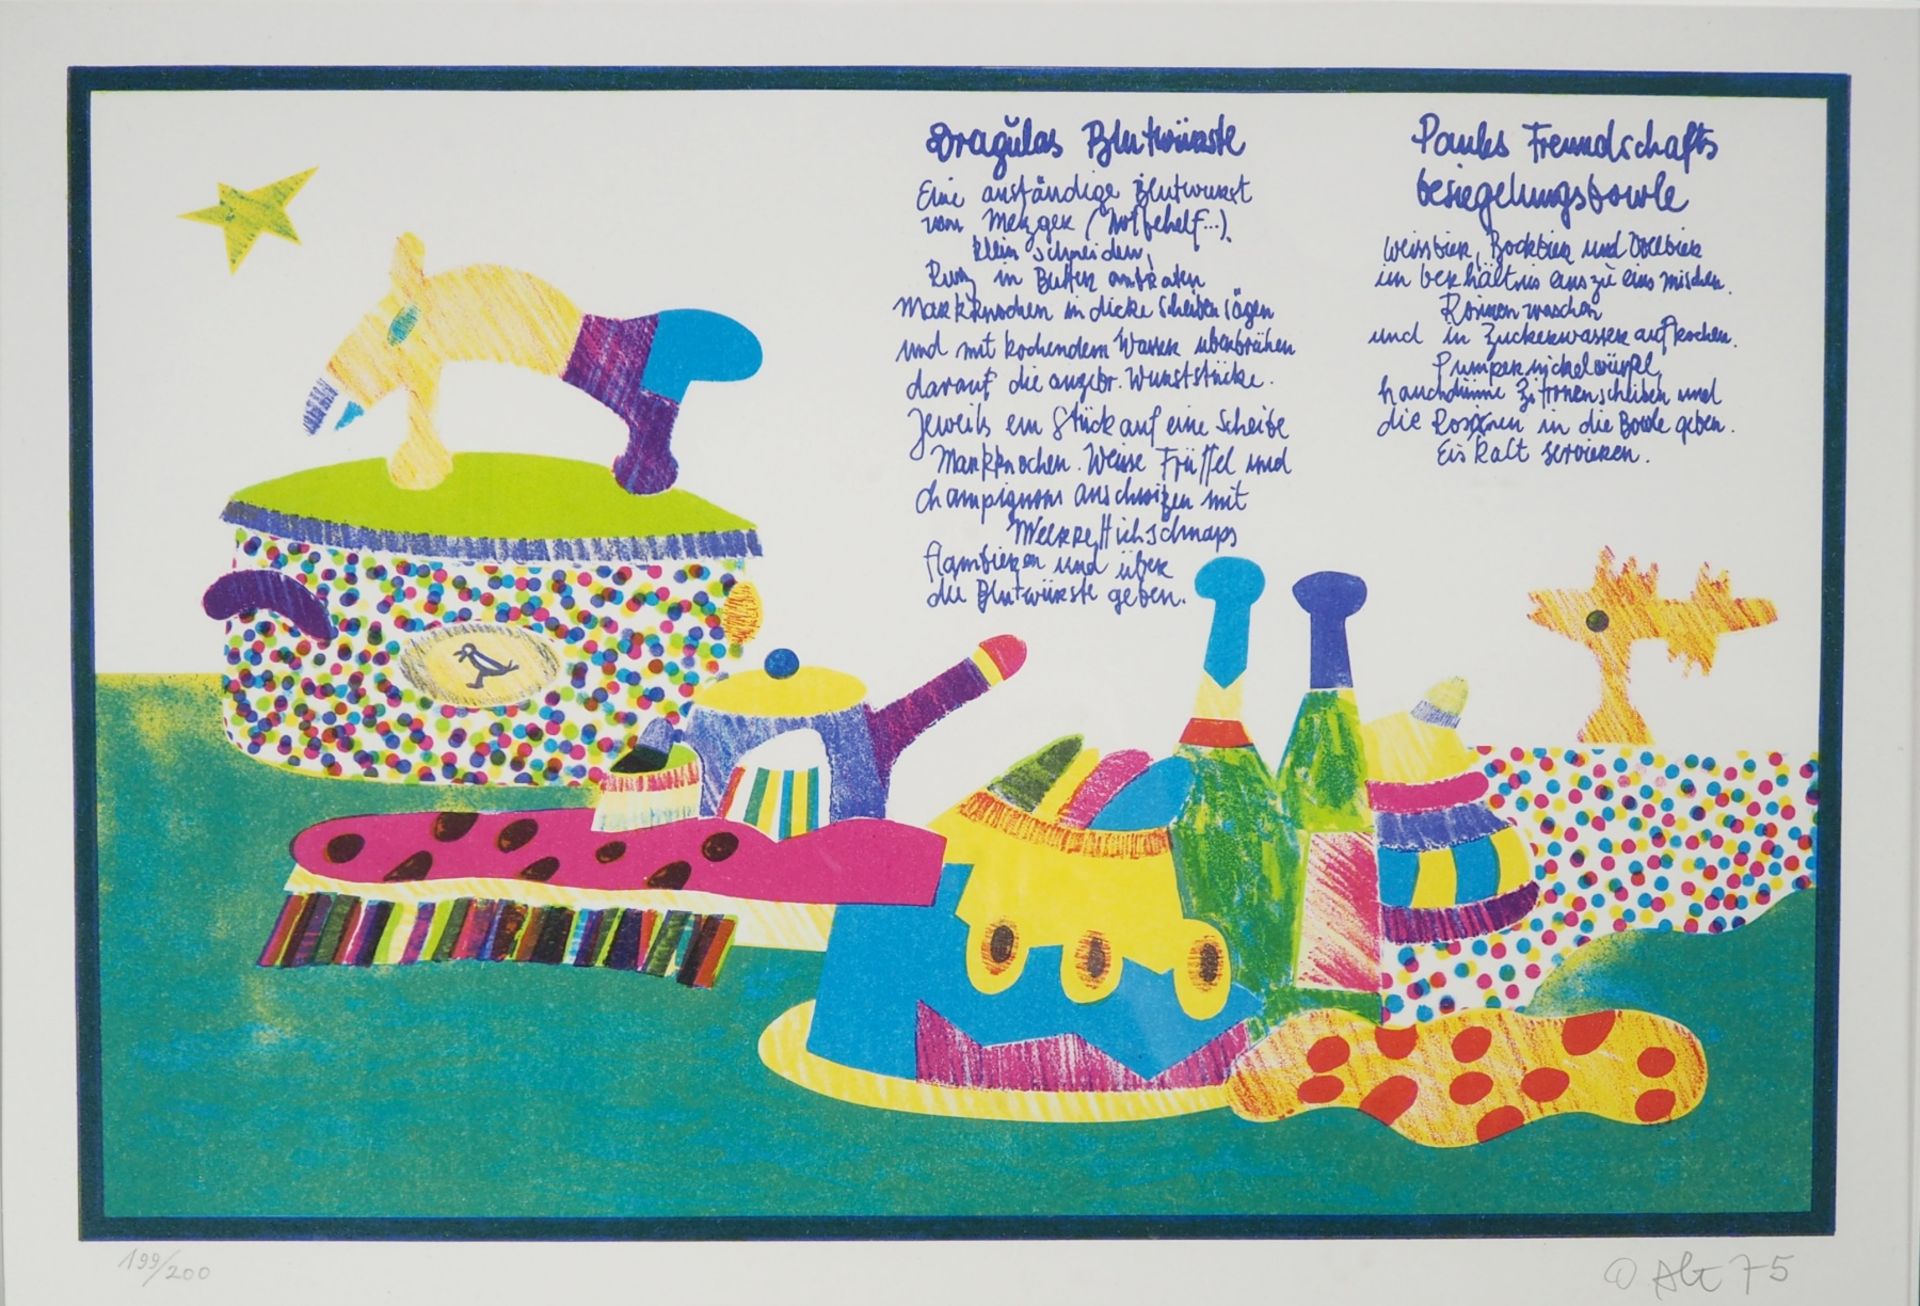 Dragŭlas Blutwürste
Eine anständige Blutwurst
vom Metzger (Notbehelf...).
klein schneiden,
Kurz in Butter anbraten
Markknochen in dicke Scheiben sägen
und mit kochendem Wasser überbrühen
darauf die angebr. Wurststücke.
Jeweils ein Stück auf eine Scheibe
Markknochen. Weisse Trüffel und
Champignons anschwitzen mit
flambieren und über
die Blutwürste geben.
Pauls Freundschafts
besiegelungsbowle
Weissbier, Bockbier und Vollbier
im Verhältnis eins zu eins mischen.
Rosinen waschen
und in Zuckerwasser aufkochen.
Pumpernickelwürfel,
hauchdünne Zitronenscheiben und
die Rosinen in die Bowle geben.
Eiskalt servieren.
199/200
O Alt 75